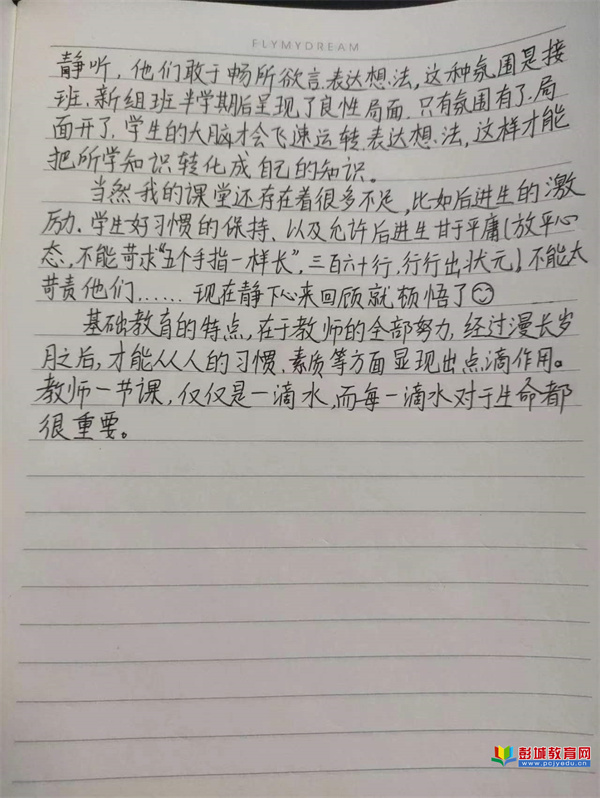 FLYMYDREAM
静听，他们敢于畅所欲言表达想法，这种氛围是接
班、新组班半学期后呈现了良性局面，只有氛围有了，局
面开了，学生的大脑才会飞速运转表达想法，这样才能
把所学知识转化成自己的知识。
当然我的课堂还存在着很多不足，比如后进生的激
励、学生好习惯的保持、以及允许后进生甘于平庸（放平心
态，不能苛求“五个手指一样长”，三百六十行，行行出状元！不能太
苛责他们……现在静下心来回顾就顿悟了☺
基础教育的特点，在于教师的全部努力，经过漫长岁
月之后，才能从人的习惯、素质等方面显现出点滴作用。
教师一节课，仅仅是一滴水，而每一滴水对于生命都
很重要。
彭城教育网
www.pcjyedu.cn